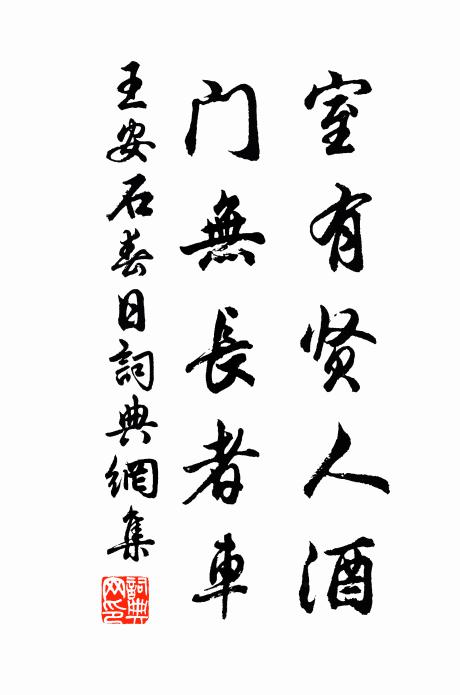 室有贤人酒
門無長者車
王安石春日詞典網集
詞典網印